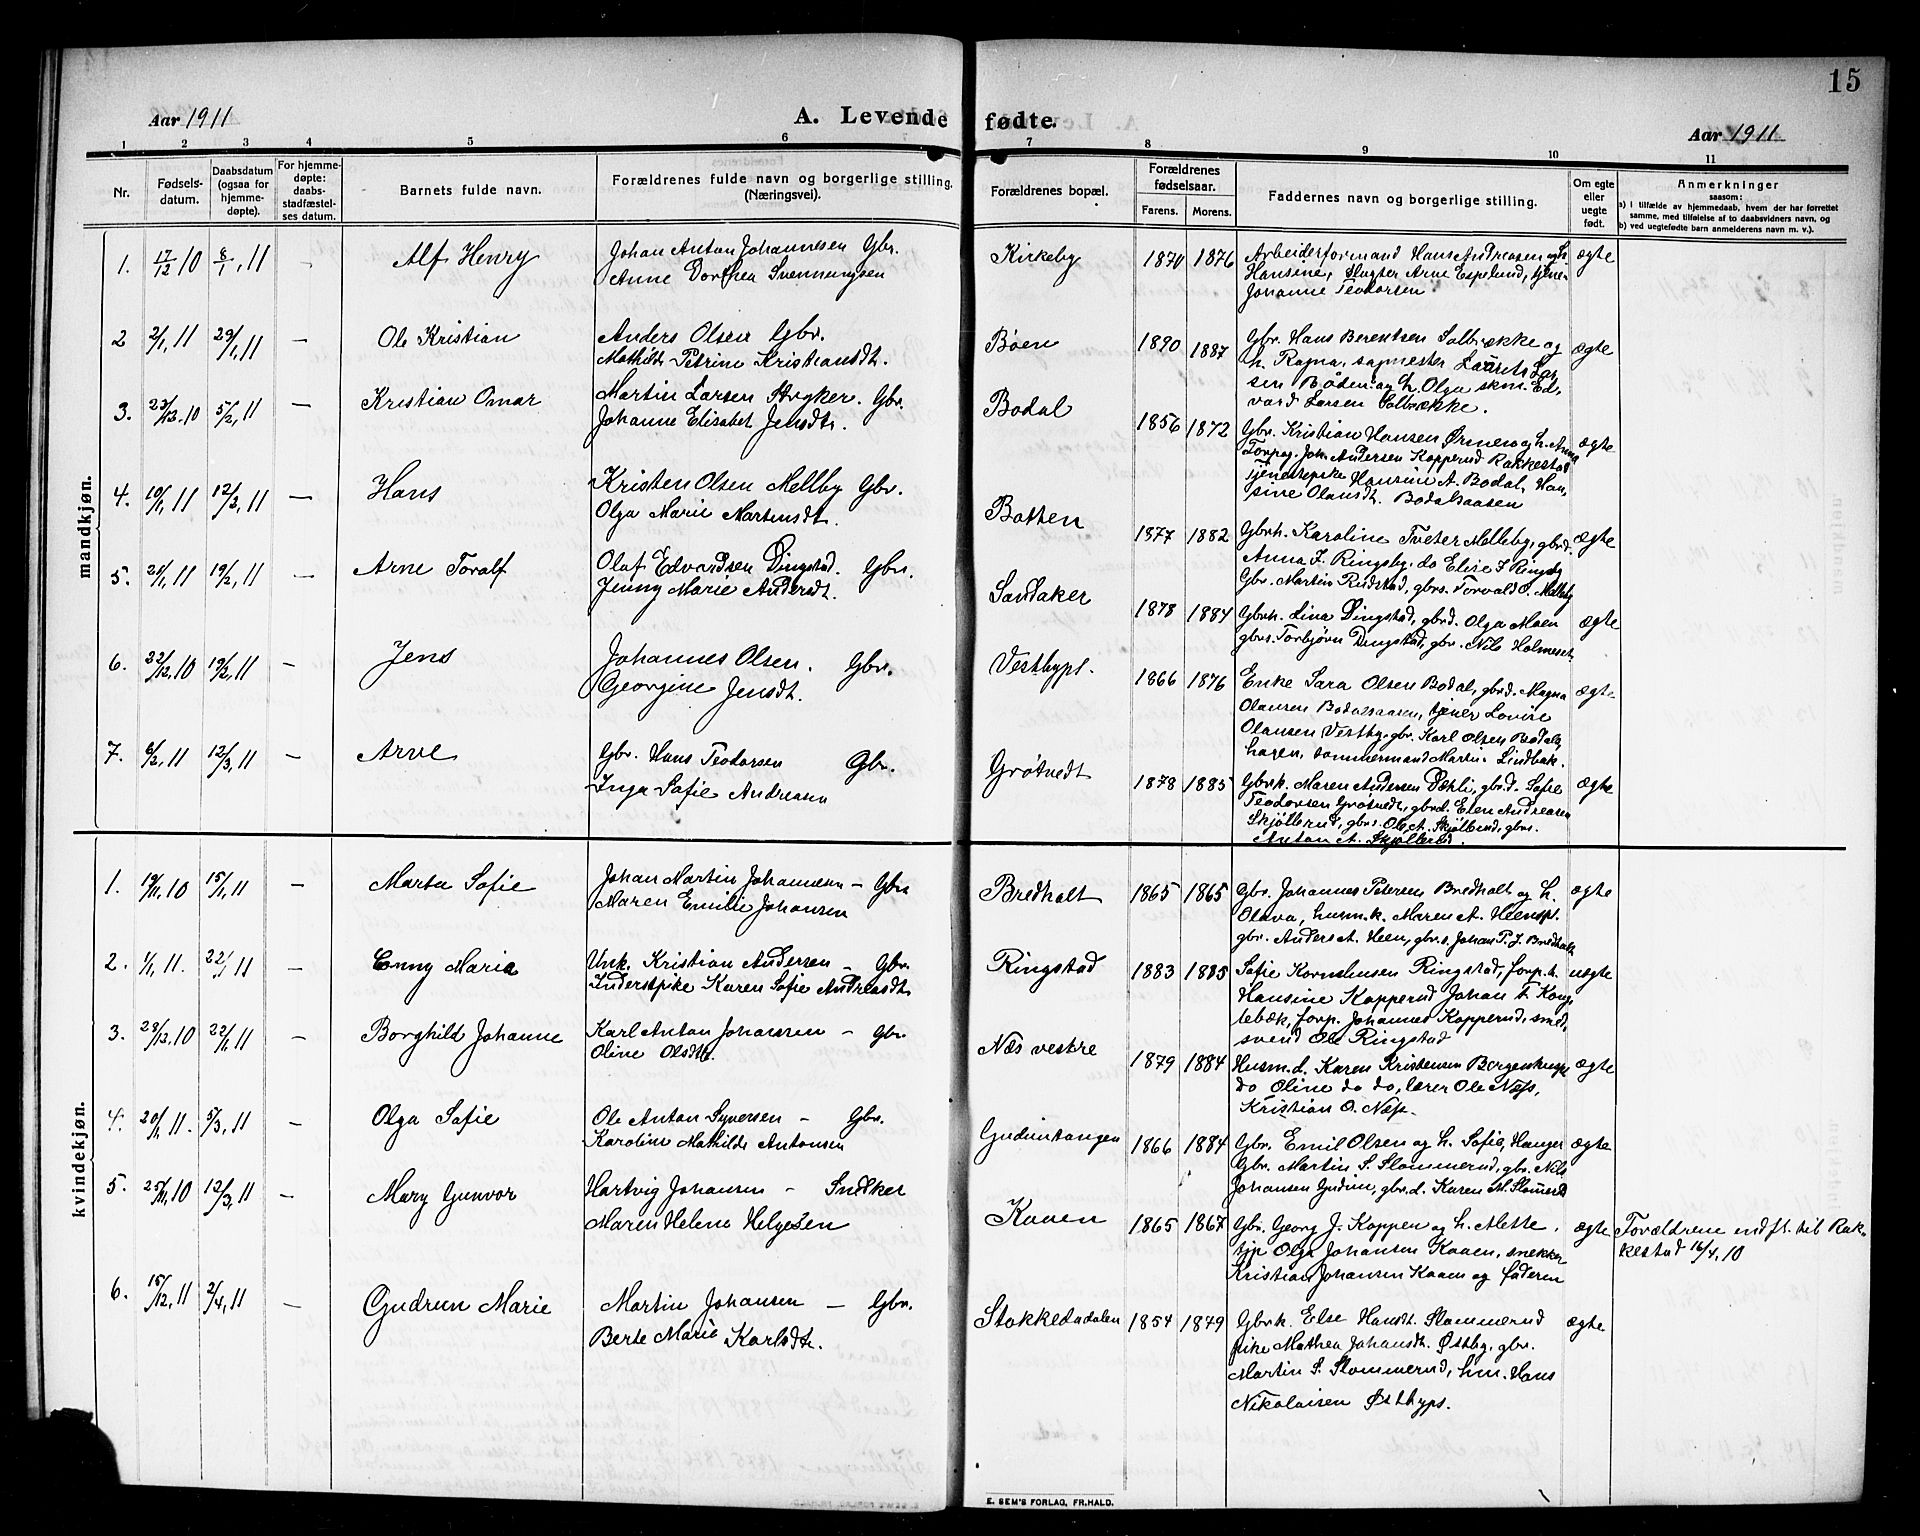 15
Aar 1911
A. Levende fødte.
Aar 1911
1 2 3 4 5 6 7 8 9 10 11
Nr.
Fødsels-
datum.
Daabsdatum
(ogsaa for
hjemme-
døpte).
For hjemme-
døpte:
daabs-
stadfæstel-
ses datum.
Barnets fulde navn.
Forældrenes fulde navn og borgerlige stilling.
(Næringsvei).
Forældrenes bopæl.
Forældrenes
fødselsaar.
Farens. Morens.
Faddernes navn og borgerlige stilling.
Om egte
eller
uegte
født.
Anmerkninger
saasom:
a) i tilfælde av hjemmedaab, hvem der har forrettet
samme, med tilføielse af to daabsvidners navn, og
b) ved uegtefødte barn anmelderens navn m. v.).
mandkjøn.
1. 17/12 10 8/1, 11 – Alf Henry
Johan Anton Johannesen Gbr.
Anne Dorthea Svenningsen
Kirkeby 1870 1876
Arbeiderformand Hans Andreassen og h.
Hansine, Slagter Arne Espelund, tjene-
Johanne Teodorsen
ægte
2 2/1, 11 29/1, 11 – Ole Kristian
Anders Olsen Gbr.
Mathilde Petrine Kristiansdt.
Bøen 1890 1887
Gbr. Hans Berentsen Solbrække og
h. Ragna, sagmester Laurits Lar-
sen Bøden og h. Olga skm. Ed-
vard Larsen Solbrække.
ægte
3. 23/12. 10 5/2, 11 – Kristian Omar
Martin Larsen Stryker. Gbr.
Johanne Elisabet Jensdtr.
Bodal 1856 1872
Gbr. Kristian Hansen Ørmen og h. Anna
Forpag. Joh. Andersen Kopperud Rakkestad
Tjenestepike Hansine A. Bodal, Han-
sine Olausdt. Bodalsaasen
ægte
4. 10/1, 11 12/3, 11 – Hans
Kristen Olsen Mellby Gbr.
Olga Marie Martinsdt.
Botten 1877 1882
Gbrh. Karoline Tveter Melleby, gbrd.
Anna J. Ringsby. do Elise J. Ringsby
Gbr. Martin Rudstad, gbrs. Torvald O. Melleby
ægte
5. 21/1, 11 19/2, 11 – Arne Toralf
Olaf Edvardsen Dingstad. Gbr.
Jenny Marie Andersdt.
Sandaker 1878 1884
Gbrh. Lina Dingstad, gbrd. Olga Moen
gbrs. Torbjørn Dingstad, gbr. Nils Holmeset.
ægte
6. 22/12, 10 19/2, 11 – Jens
Johannes Olsen. Gbr.
Georgine Jensdt.
Vestbypl. 1866 1876
Enke Sara Olsen Bodal, gbrd. Magna
Olausen Bodalsaasen, tjener Lovise
Olausen Vestby, gbr. Karl Olsen Bodals-
hagen, tømmermand Martin Lindbak.
ægte
7. 6/2, 11 12/3, 11 – Arne
Gbr. Hans Teodorsen Gbr.
Inga Sofie Andreasen
Grøtvedt 1878 1885
Gbrk. Maren Andersen Dæhli, gbrd. Sofie
Teodorsen Grøtvedt, gbrd. Elen Andreasen
Skjøllerud, gbrs. Ole A. Skjøllerud, gbrs.
Anton A. Skjøllerud.
ægte
kvindekjøn.
1. 19/11, 10 15/1, 11 – Marta Sofie
Johan Martin Johannesen – Gbr
Maren Emilie Johansen
Bredholt 1865 1865
Gbr. Johannes Petersen Bredholt og h.
Olava, husm.k. Maren A. Heenspl.
gbr. Anders A. Heen, gbr.s. Johan P. J. Bredholt
ægte
2. 1/1, 11. 22/1 11 – Conny Marie
Unk. Kristian Andersen – Gbr.
Inderstpike Karen Sofie Andreasdt.
Ringstad 1883 1885
Sofie Korneliusen Ringstad, forp.h.
Hansine Kopperud Johan T. Kong-
lebæk, forp. Johannes Kopperud, smed-
svend Ole Ringstad
uægte
3. 28/12. 10 22/1, 11 – Borghild Johanne
Karl Anton Johansen – Gbr
Oline Olsdtr.
Næs vestre 1879 1884
Husm.d. Karen Kristensen Borgenskogpl.
do Oline do do, lærer Ole Næss,
Kristian O. Næss.
ægte
4. 20/1, 11. 5/3, 11 – Olga Sofie
Ole Anton Syversen – Gbr.
Karoline Mathilde Antonsen
Gudimtangen 1866 1884
Gbr. Emil Olsen og h. Sofie, Hauger
Gbr. Martin S. Slommerud, gbr. Nils
Johansen Gudim, gbr.d. Karen M. Slomerud
ægte
5. 25/11, 10 12/3, 11 – Mary Gunvor
Hartvig Johansen – Snedker
Maren Helene Helgesen
Kaaen 1865 1867
Gbr. Georg J. Koppen og h. Mette,
tjp Olga Johansen Kaaen, snekker
Kristian Johansen Kaaen og faderen
ægte
Forældrene indfl. til Rak-
kestad 16/4, 10
6. 15/12, 11 2/4, 11 – Gudrun Marie
Martin Johansen – Gbr.
Berte Marie Karlsdtr.
Stokkedadalen 1854 1879
Gbrk. Else Hansdt. Slommerud
pike Mathea Johansdt. Østby, gbr.
Martin S. Slommerud, hm. Hans
Nikolaisen Østbypl.
ægte
E. SEM'S FORLAG, FR.HALD.